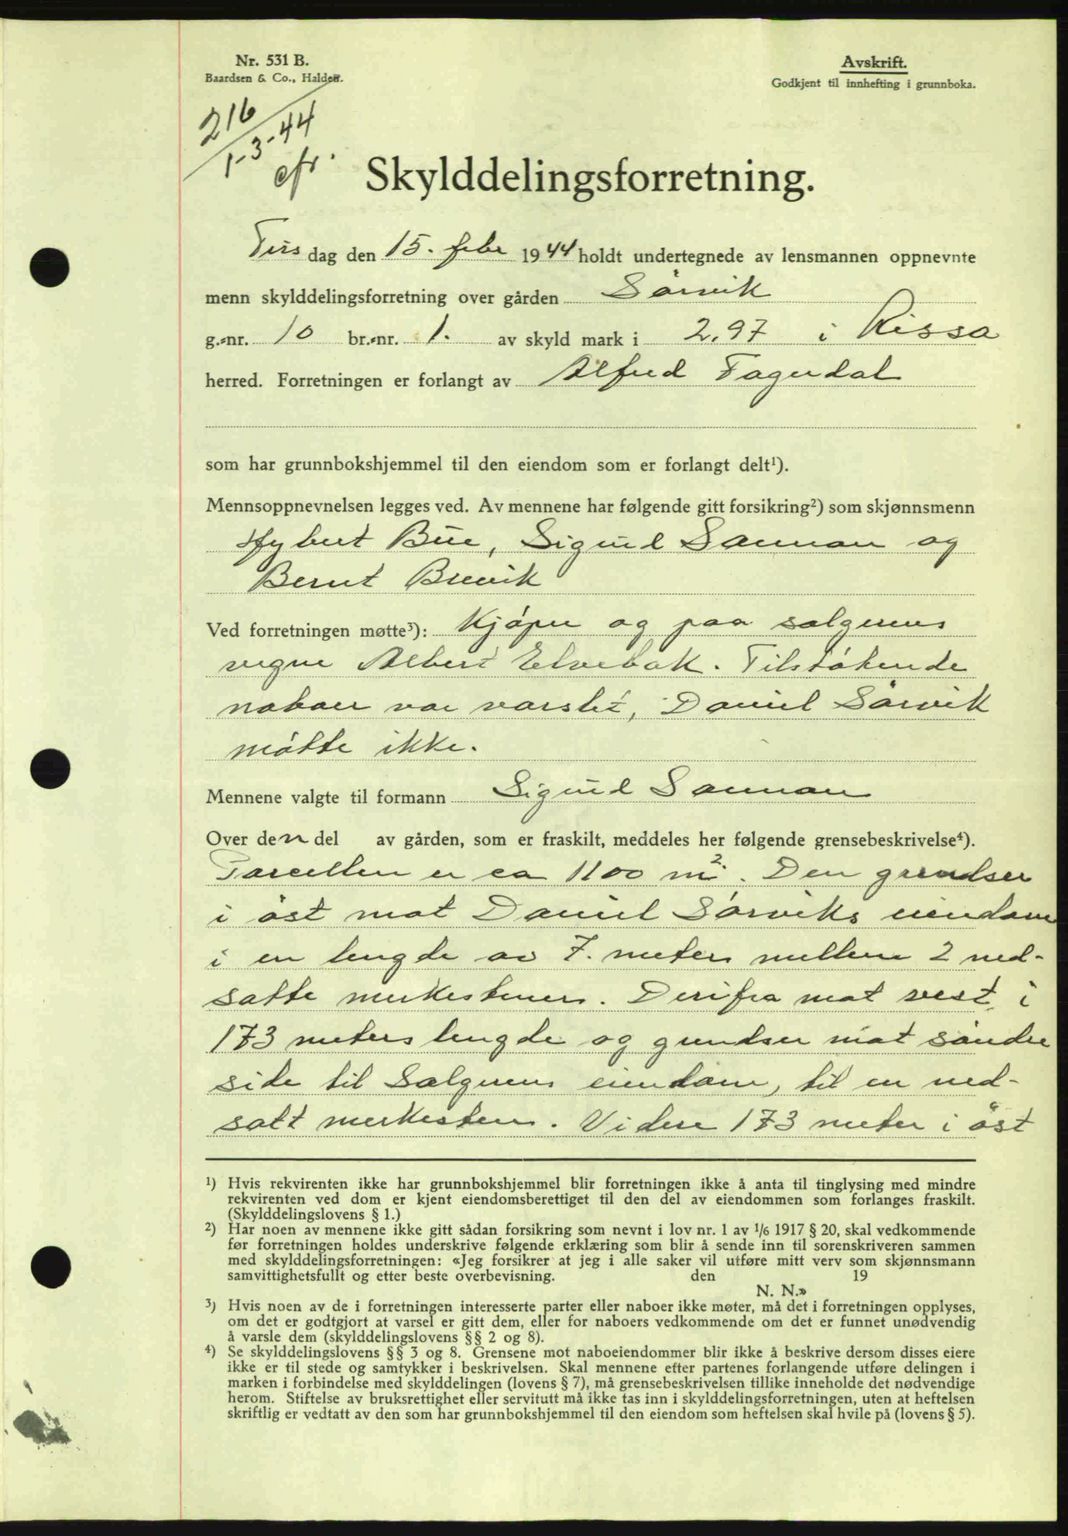 Nr. 531 B.
Baardsen & Co., Halden.
Avskrift.
Godkjent til innhefting i grunnboka.
216
1-3-44
efr.
Skylddelingsforretning.
Tirsdag den 15. febr 1944 holdt undertegnede av lensmannen oppnevnte
menn skylddelingsforretning over gården Sørvik
g.-nr. 10 br.-nr. 1. av skyld mark i 2,97 i Rissa
herred. Forretningen er forlangt av Alfred Fagerdal
som har grunnbokshjemmel til den eiendom som er forlangt delt¹).
Mennsoppnevnelsen legges ved. Av mennene har følgende gitt forsikring²) som skjønnsmenn
Hybert Bue, Sigurd Sannan og
Bernt Brevik
Ved forretningen møtte³): Kjøper og paa sælgerens
vegne Albert Elvebak. Tilstøtende
naboer var varslet, Daniel Sørvik
møtte ikke.
Mennene valgte til formann Sigurd Sannan
Over den del av gården, som er fraskilt, meddeles her følgende grensebeskrivelse⁴).
Parcellen er ca 1100 m². Den grendser
i øst mot Daniel Sørviks eiendom
i en lengde av 7. meter mellem 2 ned-
satte merkestener. Derifra mot vest i
173 meters lengde og grendser mot søndre
side til Sælgerens eiendom, til en ned-
satt merkesten. Videre 173 meter i øst
¹) Hvis rekvirenten ikke har grunnbokshjemmel blir forretningen ikke å anta til tinglysing med mindre
rekvirenten ved dom er kjent eiendomsberettiget til den del av eiendommen som forlanges fraskilt.
(Skylddelingslovens § 1.)
²) Har noen av mennene ikke gitt sådan forsikring som nevnt i lov nr. 1 av 1/6 1917 § 20, skal vedkommende
før forretningen holdes underskrive følgende erklæring som blir å sende inn til sorenskriveren sammen
med skylddelingsforretningen: «Jeg forsikrer at jeg i alle saker vil utføre mitt verv som skjønnsmann
samvittighetsfullt og etter beste overbevisning. den 19
N. N.»
³) Hvis noen av de i forretningen interesserte parter eller naboer ikke møter, må det i forretningen opplyses,
om det er godtgjort at varsel er gitt dem, eller for naboers vedkommende om det er funnet unødvendig
å varsle dem (skylddelingslovens §§ 2 og 8).
⁴) Se skylddelingslovens §§ 3 og 8. Grensene mot naboeiendommer blir ikke å beskrive dersom disses eiere
ikke er til stede og samtykker i beskrivelsen. Skal mennene efter partenes forlangende utføre delingen i
marken i forbindelse med skylddelingen (lovens § 7), må grensebeskrivelsen tillike inneholde det nødvendige
herom. Stiftelse av bruksrettighet eller servitutt må ikke tas inn i skylddelingsforretningen, uten at heftelsen
skriftlig er vedtatt av den som har grunnbokshjemmel til den eiendom som heftelsen skal hvile på (lovens § 5).